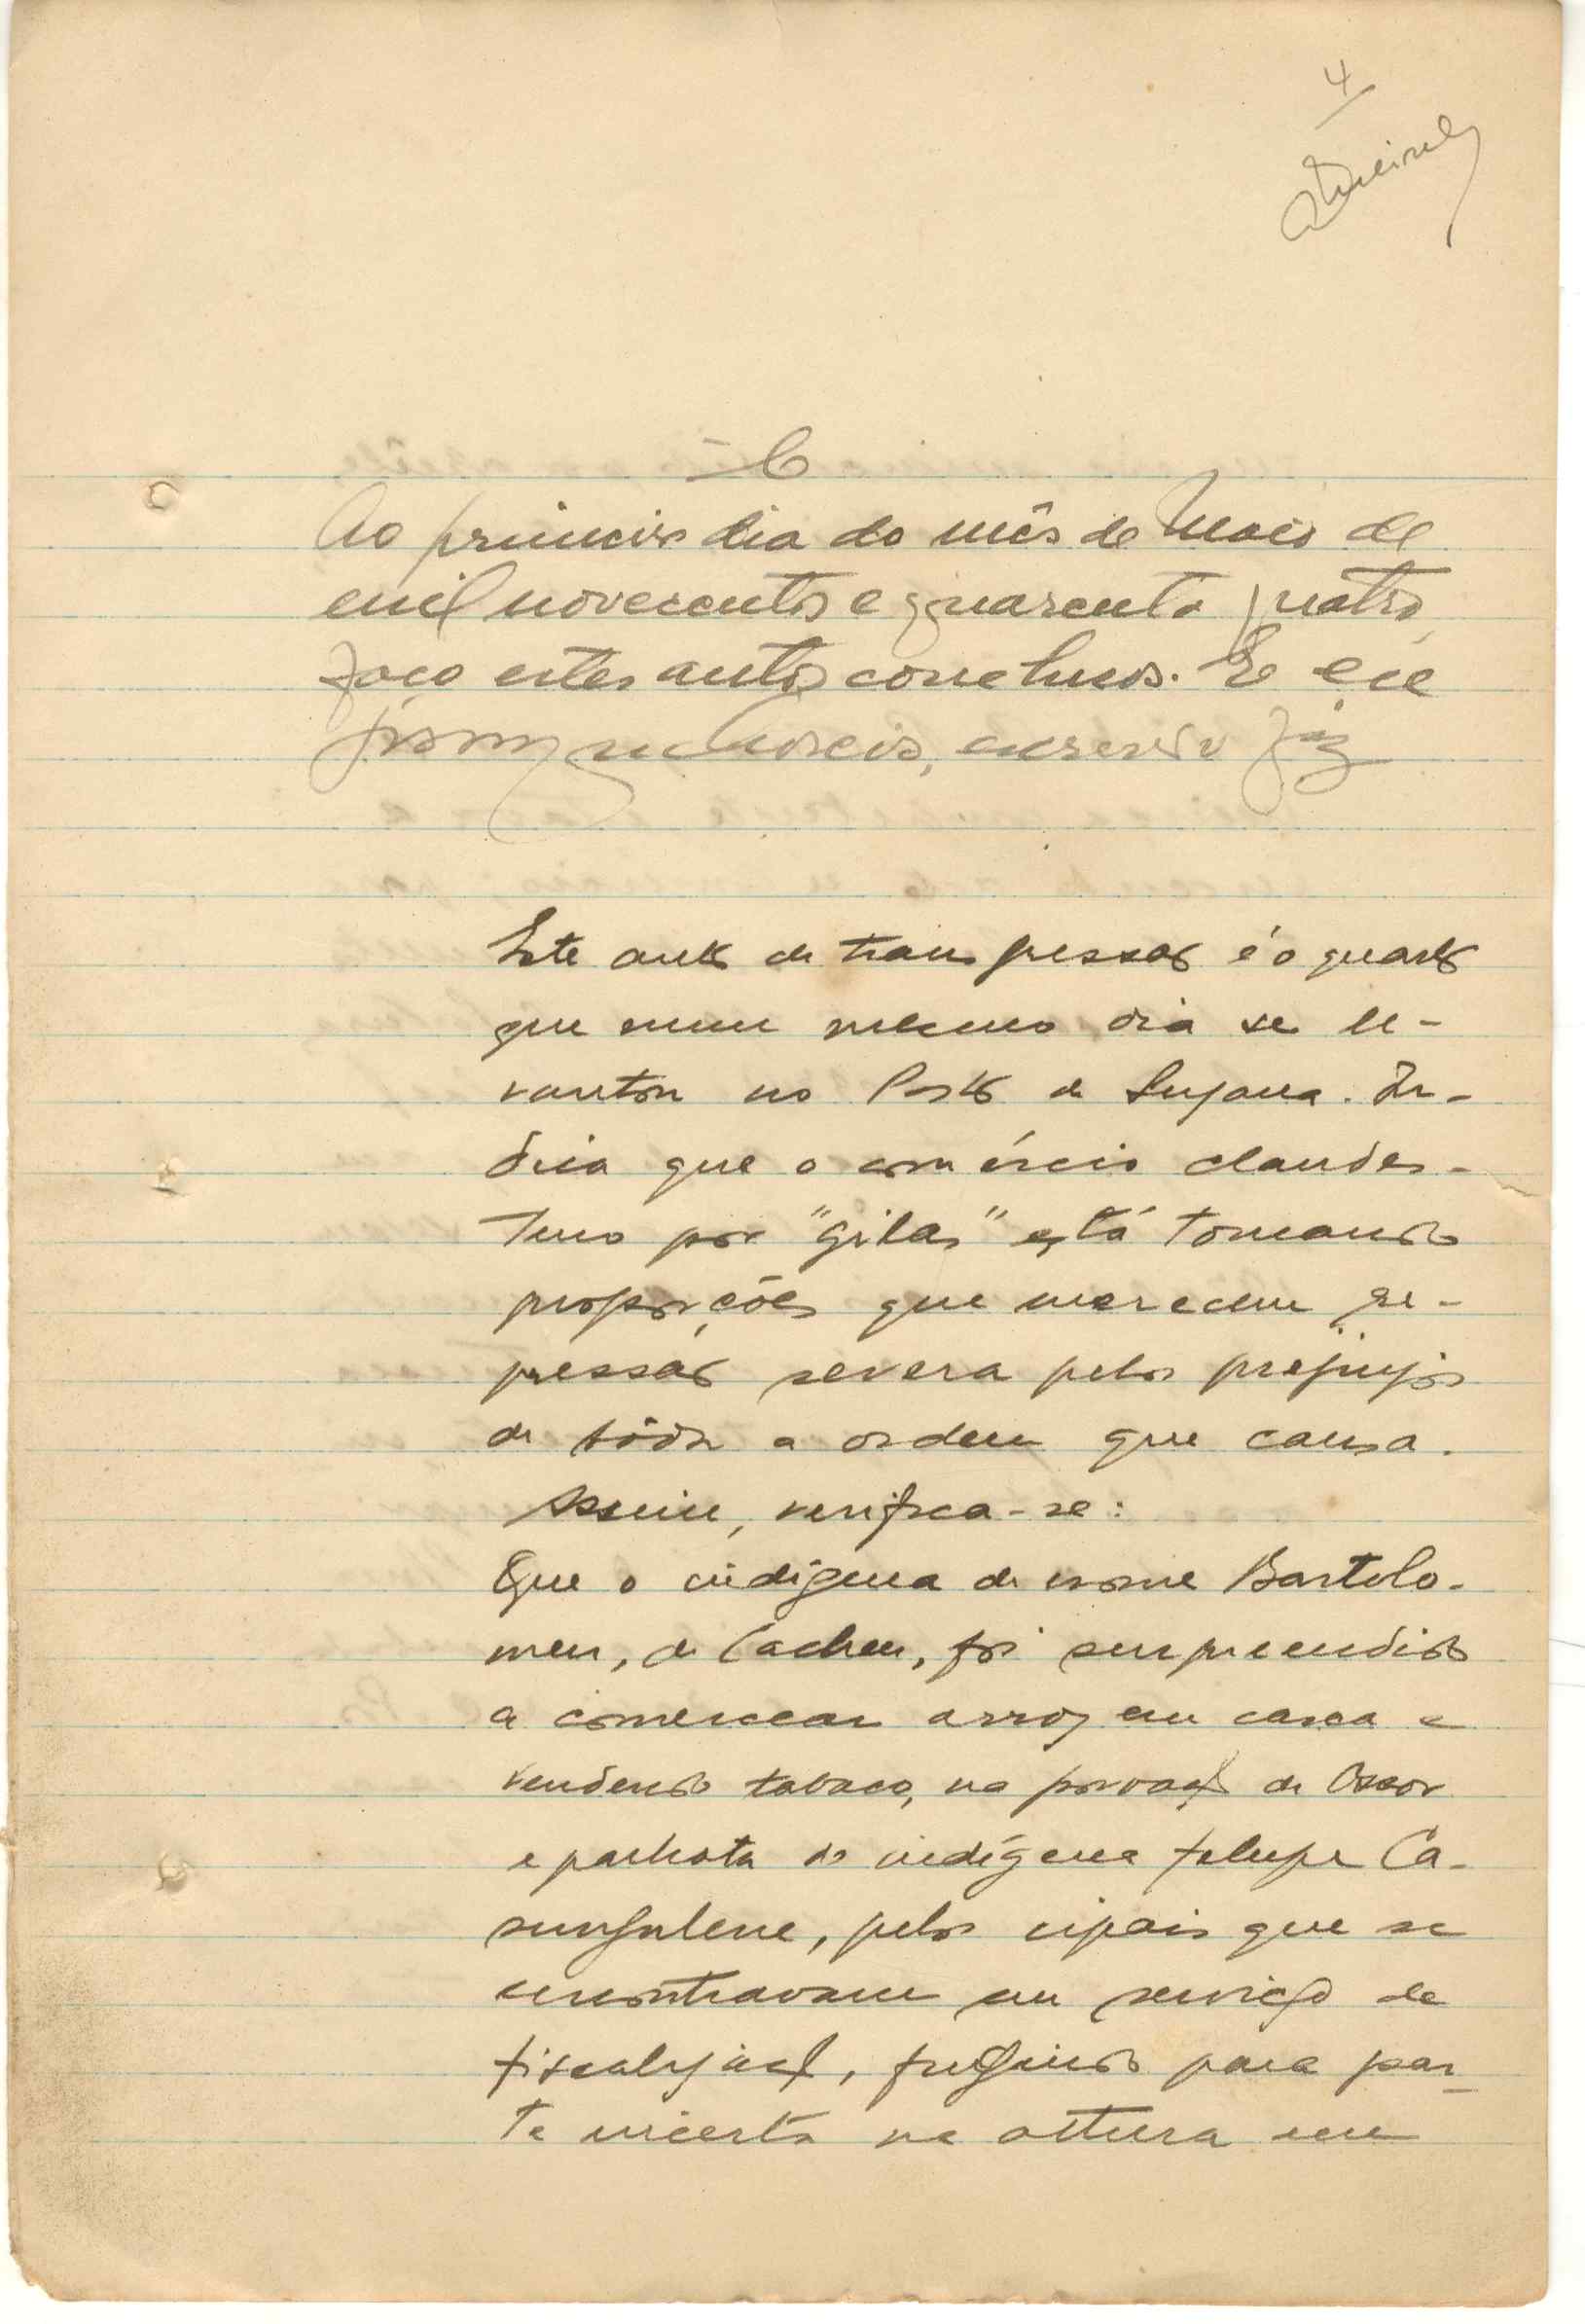 4
Ao primeiro dia do mês de Maio de
mil novecentos e quarenta quatro
faço estes autos conclusos. E eu
escrivão fiz
Este auto de transgressão é o quarto
que num mesmo dia se le-
vantou no Posto de Suzana. In-
dica que o comércio clandes-
tino por "gilas" está tomando
proporções que merecem re-
pressão severa pelos prejuízos
de tôda a ordem que causa.
Assim, verifica-se:
Que o indígena de nome Bartolo-
meu, de Cacheu, foi surpreendido
a comerciar arroz em casca e
vendendo tabaco, na povoação de Ossor
e palhota do indígena felupe Ca-
sungulene, pelos cipais que se
encontravam em serviço de
fiscalização, fugindo para par-
te incerta na altura em